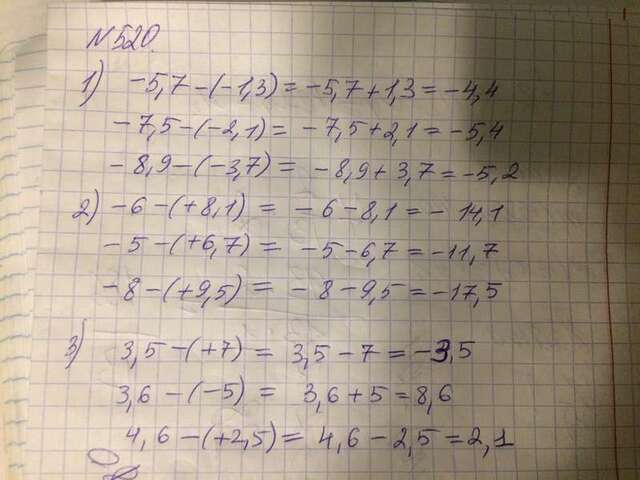 N 520.
1) -5,7 - (-1,3) = -5,7 + 1,3 = -4,4
-7,5 - (-2,1) = -7,5 + 2,1 = -5,4
-8,9 - (-3,7) = -8,9 + 3,7 = -5,2
2) -6 - (+8,1) = -6 - 8,1 = -14,1
-5 - (+6,7) = -5 - 6,7 = -11,7
-8 - (+9,5) = -8 - 9,5 = -17,5
3) 3,5 - (+7) = 3,5 - 7 = -3,5
3,6 - (-5) = 3,6 + 5 = 8,6
4,6 - (+2,5) = 4,6 - 2,5 = 2,1